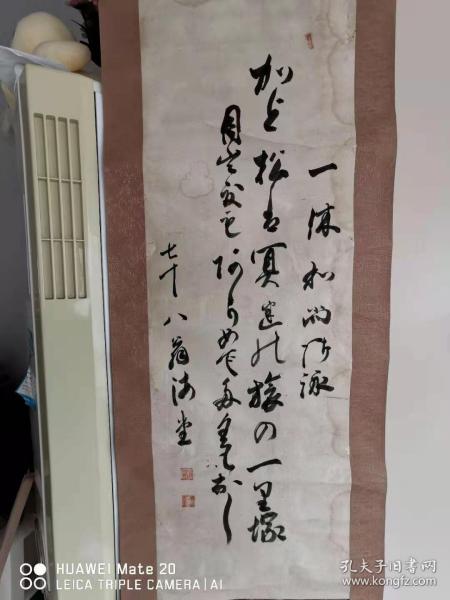 一休和尚御詠
加と松は冥途の旅の一里塚
目出度も阿りめでたくもなし
七十八翁
HUAWEI Mate 20
LEICA TRIPLE CAMERA | AI
孔夫子旧书网
www.kongfz.com